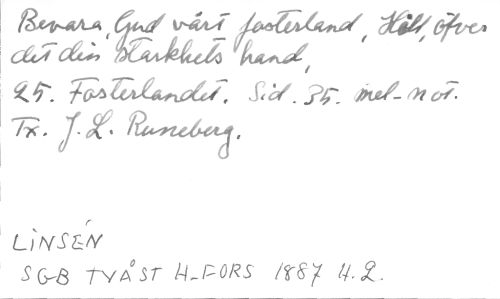 Bevara, Gud vårt fosterland, Håll, öfver
det din starkhets hand,
25. Fosterlandet. Sid. 35. mel-not.
Tx. J. L. Runeberg.
LINSÉN
SGB TVÅST H-FORS 1887 H.2.